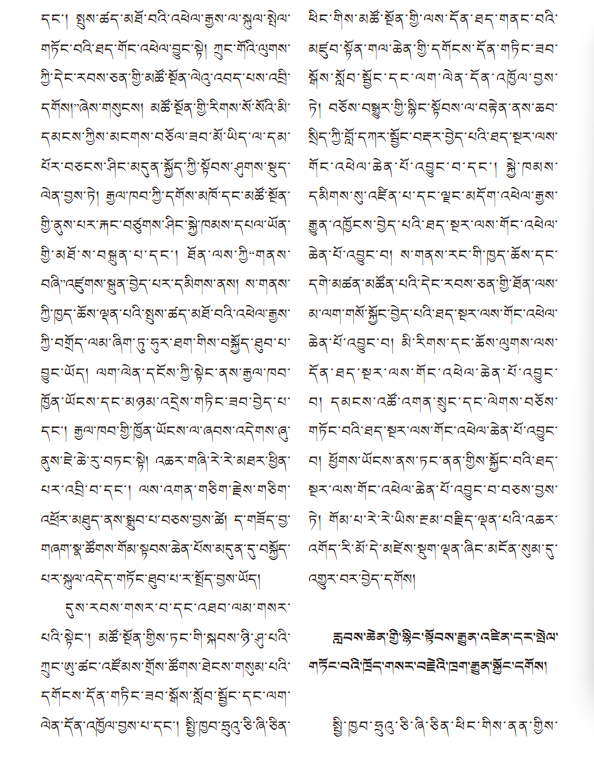 དང་། སྤུས་ཚད་མཐོ་བའི་འཕེལ་རྒྱས་ལ་སྐུལ་སྤེལ་
གཏོང་བའི་ཐད་གོང་འཕེལ་བྱུང་སྟེ། ཀྲུང་གོའི་ལུགས་
ཀྱི་དེང་རབས་ཅན་གྱི་མཚོ་སྔོན་ལེའུ་འབད་པས་འབྲི་
དགོས།”ཞེས་གསུངས། མཚོ་སྔོན་གྱི་རིགས་སོ་སོའི་མི་
དམངས་ཀྱིས་མངགས་བཅོལ་ཟབ་མོ་ཡིད་ལ་དམ་
པོར་བཅངས་ཤིང་མདུན་སྐྱོད་ཀྱི་སྟོབས་ཤུགས་སྡུད་
ལེན་བྱས་ཏེ། རྒྱལ་ཁབ་ཀྱི་དགོས་མཁོ་དང་མཚོ་སྔོན་
གྱི་ནུས་པར་རྐང་བཙུགས་ཤིང་སྐྱེ་ཁམས་དཔལ་ཡོན་
གྱི་མཐོ་ས་བསྐྲུན་པ་དང་། ཐོན་ལས་ཀྱི“གནས་
བཞི”འཛུགས་སྐྲུན་བྱེད་པར་དམིགས་ནས། ས་གནས་
ཀྱི་ཁྱད་ཆོས་ལྡན་པའི་སྤུས་ཚད་མཐོ་བའི་འཕེལ་རྒྱས་
ཀྱི་བགྲོད་ལམ་ཞིག་ཏུ་ཧུར་ཐག་གིས་བསྐྱོད་ཐུབ་པ་
བྱུང་ཡོད། ལག་ལེན་དངོས་ཀྱི་སྟེང་ནས་རྒྱལ་ཁབ་
ཁྱོན་ཡོངས་དང་མཉམ་འདྲེས་གཏིང་ཟབ་བྱེད་པ་
དང་། རྒྱལ་ཁབ་ཀྱི་ཁྱོན་ཡོངས་ལ་ཞབས་འདེགས་ཞུ་
ནུས་ཇེ་ཆེ་རུ་བཏང་སྟེ། འཆར་གཞི་རེ་རེ་མཐར་ཕྱིན་
པར་འབྲི་བ་དང་། ལས་འགན་གཅིག་རྗེས་གཅིག་
འཕྲོར་མཐུད་ནས་སྒྲུབ་པ་བཅས་བྱས་ཚེ། ད་གཟོད་བྱ་
གཞག་སྣ་ཚོགས་གོམ་སྟབས་ཆེན་པོས་མདུན་དུ་བསྐྱོད་
པར་སྐུལ་འདེད་གཏོང་ཐུབ་པ་ར་སྤྲོད་བྱས་ཡོད།
དུས་རབས་གསར་བ་དང་འཐབ་ལམ་གསར་
པའི་སྟེང་། མཚོ་སྔོན་གྱིས་ཏང་གི་སྐབས་ཉི་ཤུ་པའི་
ཀྲུང་ཨུ་ཚང་འཛོམས་གྲོས་ཚོགས་ཐེངས་གསུམ་པའི་
དགོངས་དོན་གཏིང་ཟབ་སྒོས་སློབ་སྦྱོང་དང་ལག་
ལེན་དོན་འཁྱོལ་བྱས་པ་དང་། སྤྱི་ཁྱབ་ཧྲུའུ་ཅི་ཞི་ཅིན་
ཕིང་གིས་མཚོ་སྔོན་གྱི་ལས་དོན་ཐད་གནང་བའི་
མཛུབ་སྟོན་གལ་ཆེན་གྱི་དགོངས་དོན་གཏིང་ཟབ་
སྒོས་སློབ་སྦྱོང་དང་ལག་ལེན་དོན་འཁྱོལ་བྱས་
ཏེ། བཅོས་བསྒྱུར་གྱི་སྙིང་སྟོབས་ལ་བརྟེན་ནས་ཆབ་
སྲིད་ཀྱི་བློ་དཀར་སྦྱོང་བརྡར་བྱེད་པའི་ཐད་སྔར་ལས་
གོང་འཕེལ་ཆེན་པོ་འབྱུང་བ་དང་། སྐྱེ་ཁམས་
དམིགས་སུ་འཛིན་པ་དང་ལྗང་མདོག་འཕེལ་རྒྱས་
རྒྱུན་འཁྱོངས་བྱེད་པའི་ཐད་སྔར་ལས་གོང་འཕེལ་
ཆེན་པོ་འབྱུང་བ། ས་གནས་རང་གི་ཁྱད་ཆོས་དང་
དགེ་མཚན་མཚོན་པའི་དེང་རབས་ཅན་གྱི་ཐོན་ལས་
མ་ལག་གསོ་སྐྱོང་བྱེད་པའི་ཐད་སྔར་ལས་གོང་འཕེལ་
ཆེན་པོ་འབྱུང་བ། མི་རིགས་དང་ཆོས་ལུགས་ལས་
དོན་ཐད་སྔར་ལས་གོང་འཕེལ་ཆེན་པོ་འབྱུང་
བ། དམངས་འཚོ་འགན་སྲུང་དང་ལེགས་བཅོས་
གཏོང་བའི་ཐད་སྔར་ལས་གོང་འཕེལ་ཆེན་པོ་འབྱུང་
བ། ཕྱོགས་ཡོངས་ནས་ཏང་ནན་གྱིས་སྐྱོང་བའི་ཐད་
སྔར་ལས་གོང་འཕེལ་ཆེན་པོ་འབྱུང་བ་བཅས་བྱས་
ཏེ། གོམ་པ་རེ་རེ་ཡིས་རྔམ་བརྗིད་ལྡན་པའི་འཆར་
འགོད་རི་མོ་དེ་མཛེས་སྡུག་ལྡན་ཞིང་མངོན་སུམ་དུ་
འགྱུར་བར་བྱེད་དགོས།
རླབས་ཆེན་གྱི་སྙིང་སྟོབས་རྒྱུན་འཛིན་དར་སྤེལ་
གཏོང་བའི་ཁྲོད་གསར་བརྗེའི་ཁྲག་རྒྱུན་སྐྱོང་དགོས།
སྤྱི་ཁྱབ་ཧྲུའུ་ཅི་ཞི་ཅིན་ཕིང་གིས་ནན་གྱིས་